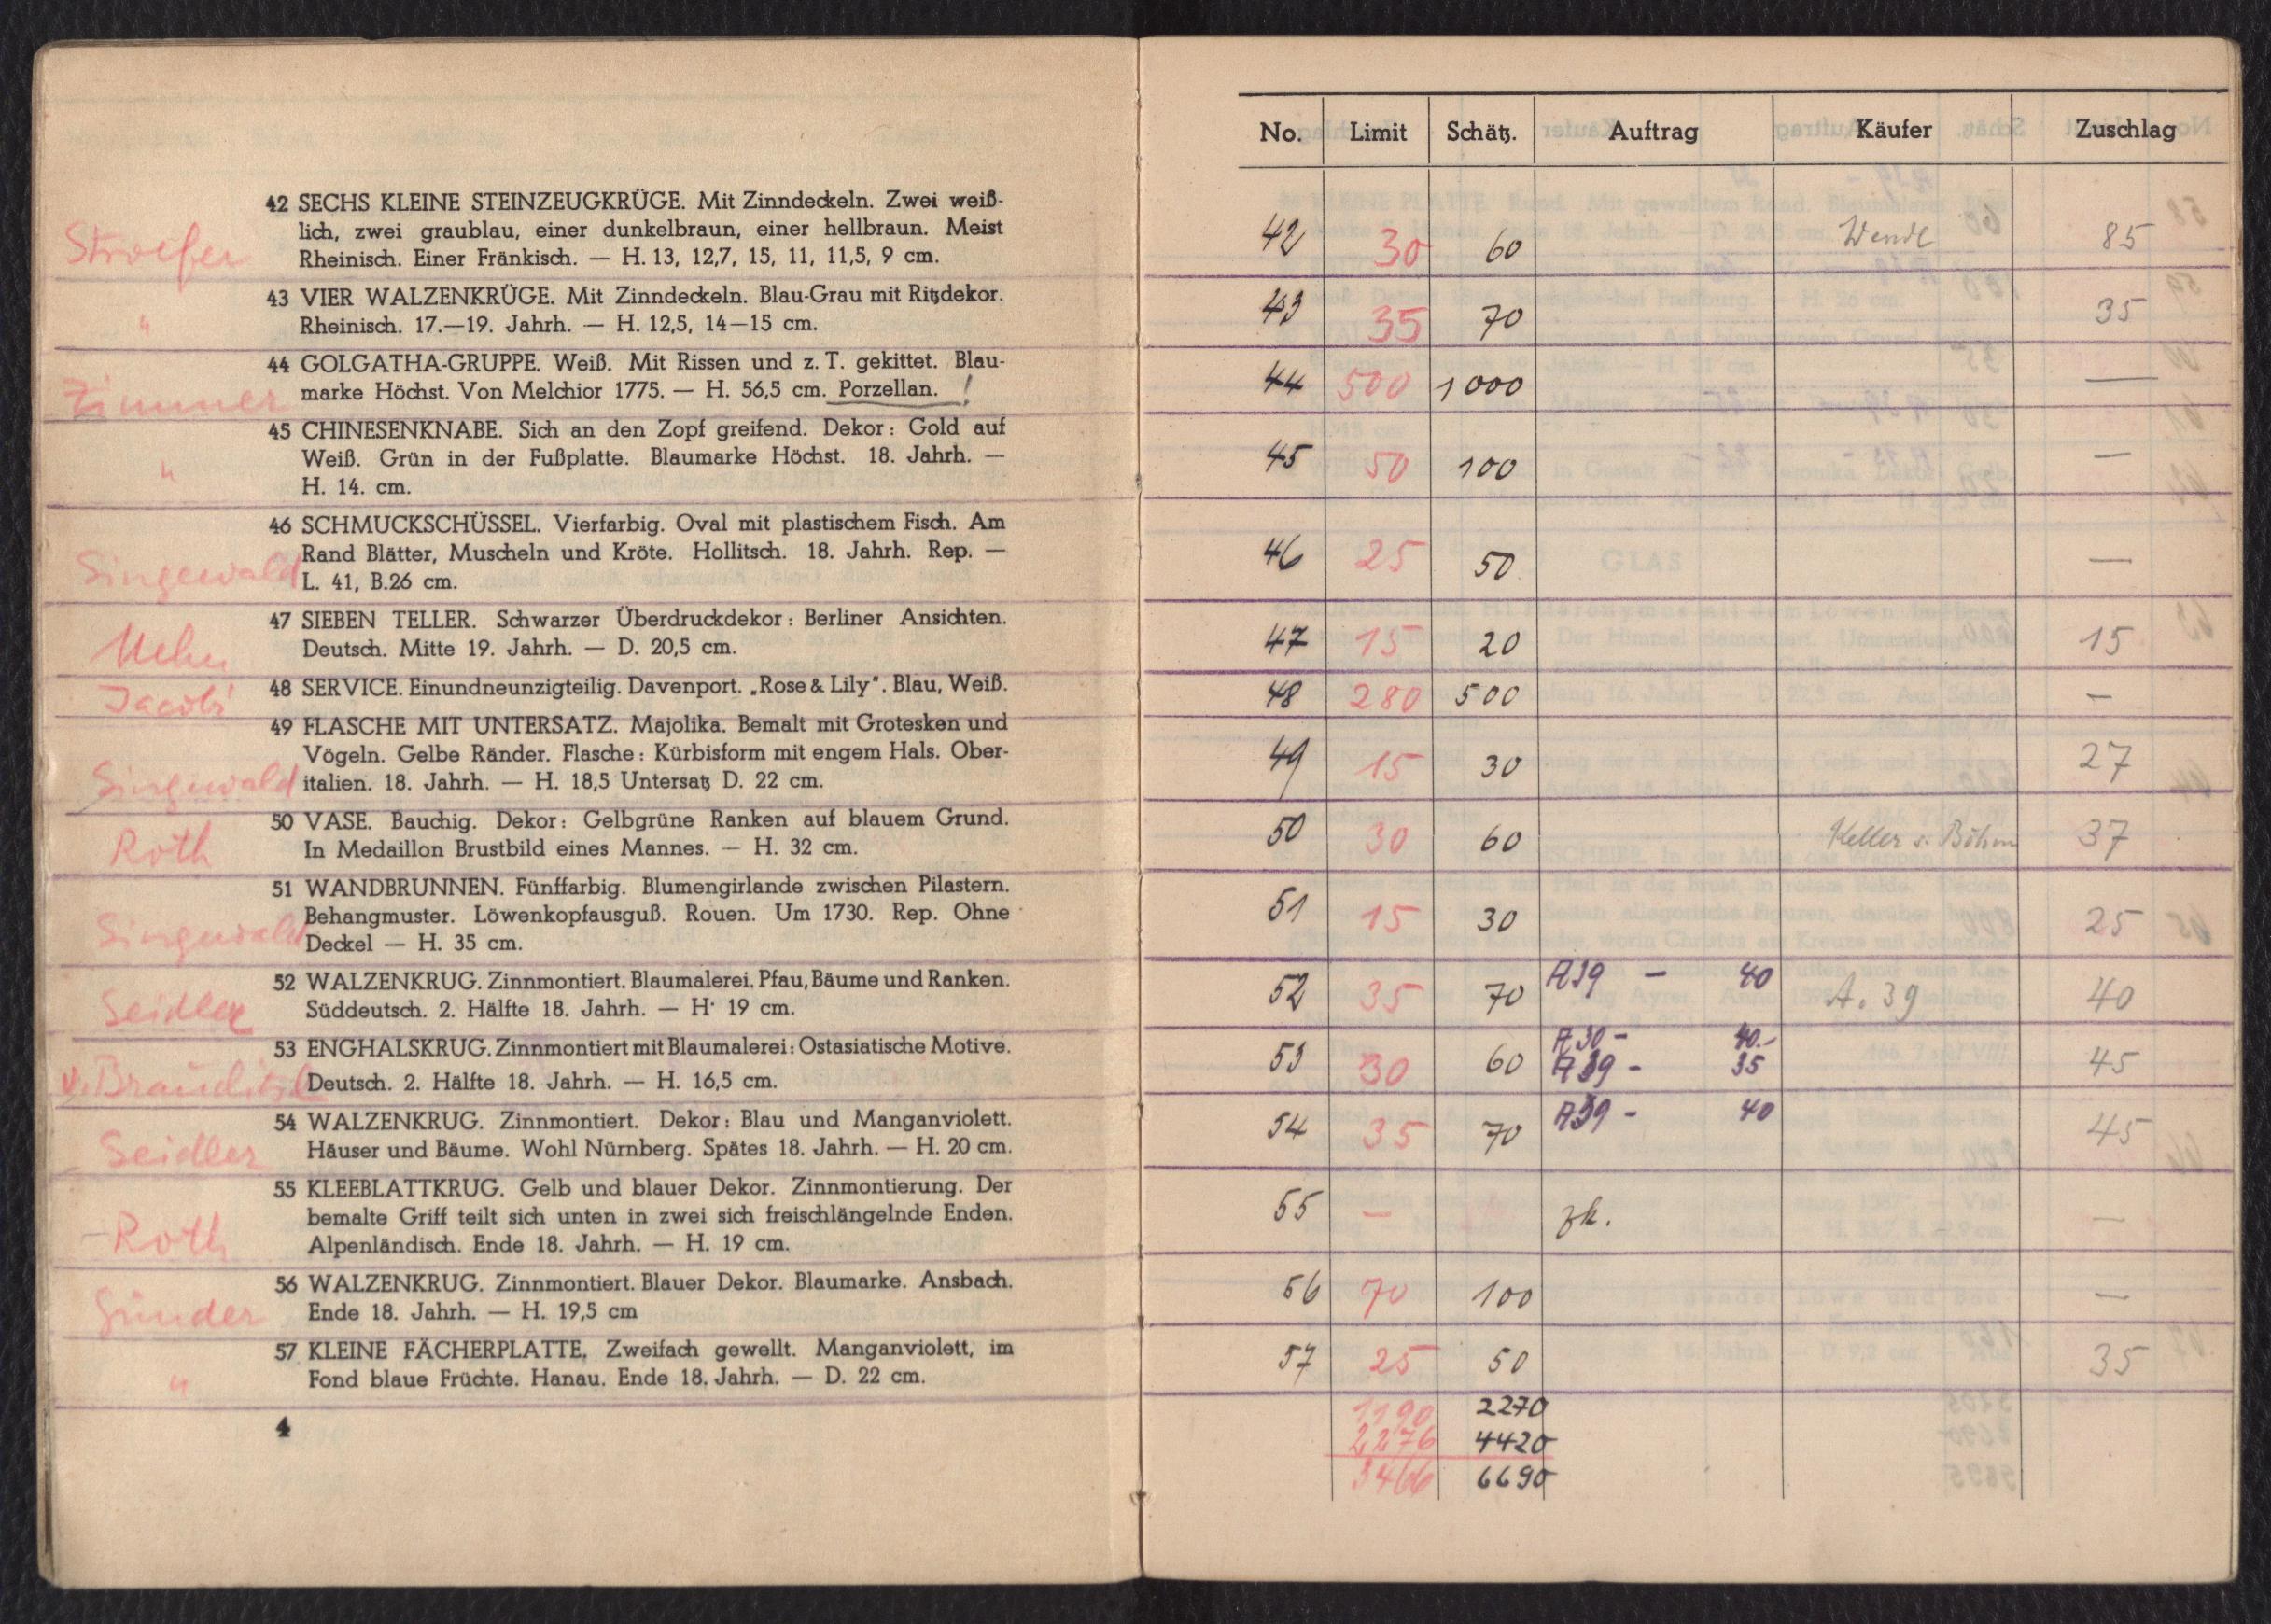 42 SECHS KLEINE STEINZEUGKRÜGE. Mit Zinndeckeln. Zwei weiß-
lich, zwei graublau, einer dunkelbraun, einer hellbraun. Meist
Stroefer
Rheinisch. Einer Fränkisch. — H. 13, 12,7, 15, 11, 11,5, 9 cm.
43 VIER WALZENKRÜGE. Mit Zinndeckeln. Blau-Grau mit Ritzdekor.
" Rheinisch. 17.—19. Jahrh. — H. 12,5, 14—15 cm.
44 GOLGATHA-GRUPPE. Weiß. Mit Rissen und z. T. gekittet. Blau-
Zimmer marke Höchst. Von Melchior 1775. — H. 56,5 cm. Porzellan. !
45 CHINESENKNABE. Sich an den Zopf greifend. Dekor: Gold auf
" Weiß. Grün in der Fußplatte. Blaumarke Höchst. 18. Jahrh. —
H. 14. cm.
46 SCHMUCKSCHÜSSEL. Vierfarbig. Oval mit plastischem Fisch. Am
Rand Blätter, Muscheln und Kröte. Hollitsch. 18. Jahrh. Rep. —
Singewald L. 41, B.26 cm.
47 SIEBEN TELLER. Schwarzer Überdruckdekor: Berliner Ansichten.
Deutsch. Mitte 19. Jahrh. — D. 20,5 cm.
Jacobi 48 SERVICE. Einundneunzigteilig. Davenport. „Rose & Lily". Blau, Weiß.
49 FLASCHE MIT UNTERSATZ. Majolika. Bemalt mit Grotesken und
Vögeln. Gelbe Ränder. Flasche: Kürbisform mit engem Hals. Ober-
Singewald italien. 18. Jahrh. — H. 18,5 Untersatz D. 22 cm.
50 VASE. Bauchig. Dekor: Gelbgrüne Ranken auf blauem Grund.
Roth In Medaillon Brustbild eines Mannes. — H. 32 cm.
51 WANDBRUNNEN. Fünffarbig. Blumengirlande zwischen Pilastern.
Behangmuster. Löwenkopfausguß. Rouen. Um 1730. Rep. Ohne
Singewald Deckel — H. 35 cm.
52 WALZENKRUG. Zinnmontiert. Blaumalerei. Pfau, Bäume und Ranken.
Seidler Süddeutsch. 2. Hälfte 18. Jahrh. — H· 19 cm.
53 ENGHALSKRUG. Zinnmontiert mit Blaumalerei: Ostasiatische Motive.
Deutsch. 2. Hälfte 18. Jahrh. — H. 16,5 cm.
54 WALZENKRUG. Zinnmontiert. Dekor: Blau und Manganviolett.
Seidler Häuser und Bäume. Wohl Nürnberg. Spätes 18. Jahrh. — H. 20 cm.
55 KLEEBLATTKRUG. Gelb und blauer Dekor. Zinnmontierung. Der
bemalte Griff teilt sich unten in zwei sich freischlängelnde Enden.
- Roth Alpenländisch. Ende 18. Jahrh. — H. 19 cm.
56 WALZENKRUG. Zinnmontiert. Blauer Dekor. Blaumarke. Ansbach.
Günder Ende 18. Jahrh. — H. 19,5 cm
57 KLEINE FÄCHERPLATTE. Zweifach gewellt. Manganviolett, im
" Fond blaue Früchte. Hanau. Ende 18. Jahrh. — D. 22 cm.
4
No. Limit Schätz. Auftrag Käufer Zuschlag
42 30 60 Wendl 85
43 35 70 35
44 500 1000 —
45 50 100 —
46 25 50 —
47 15 20 15
48 280 500 —
49 15 30 27
50 30 60 Keller s. Böhm 37
51 15 30 25
52 35 70 A39 — 40 A. 39 40
A30 - 40.-
53 30 60 A39 - 35 45
54 35 70 A39 - 40 45
55 — zk. —
56 70 100 —
57 25 50 35
1190 2270
2276 4420
3466 6690